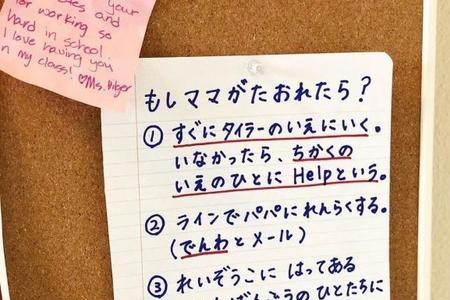 your
for working so
hard in school.
I love having you
my class! ♡Ms.
もしママがたおれたら？
① すぐにタイラーのいえにいく。
いなかったら、ちかくの
いえのひとに Helpという。
② ラインでパパにれんらくする。
(でんわとメール)
③ れいぞうこに はってある
ばんごうのひとたちに